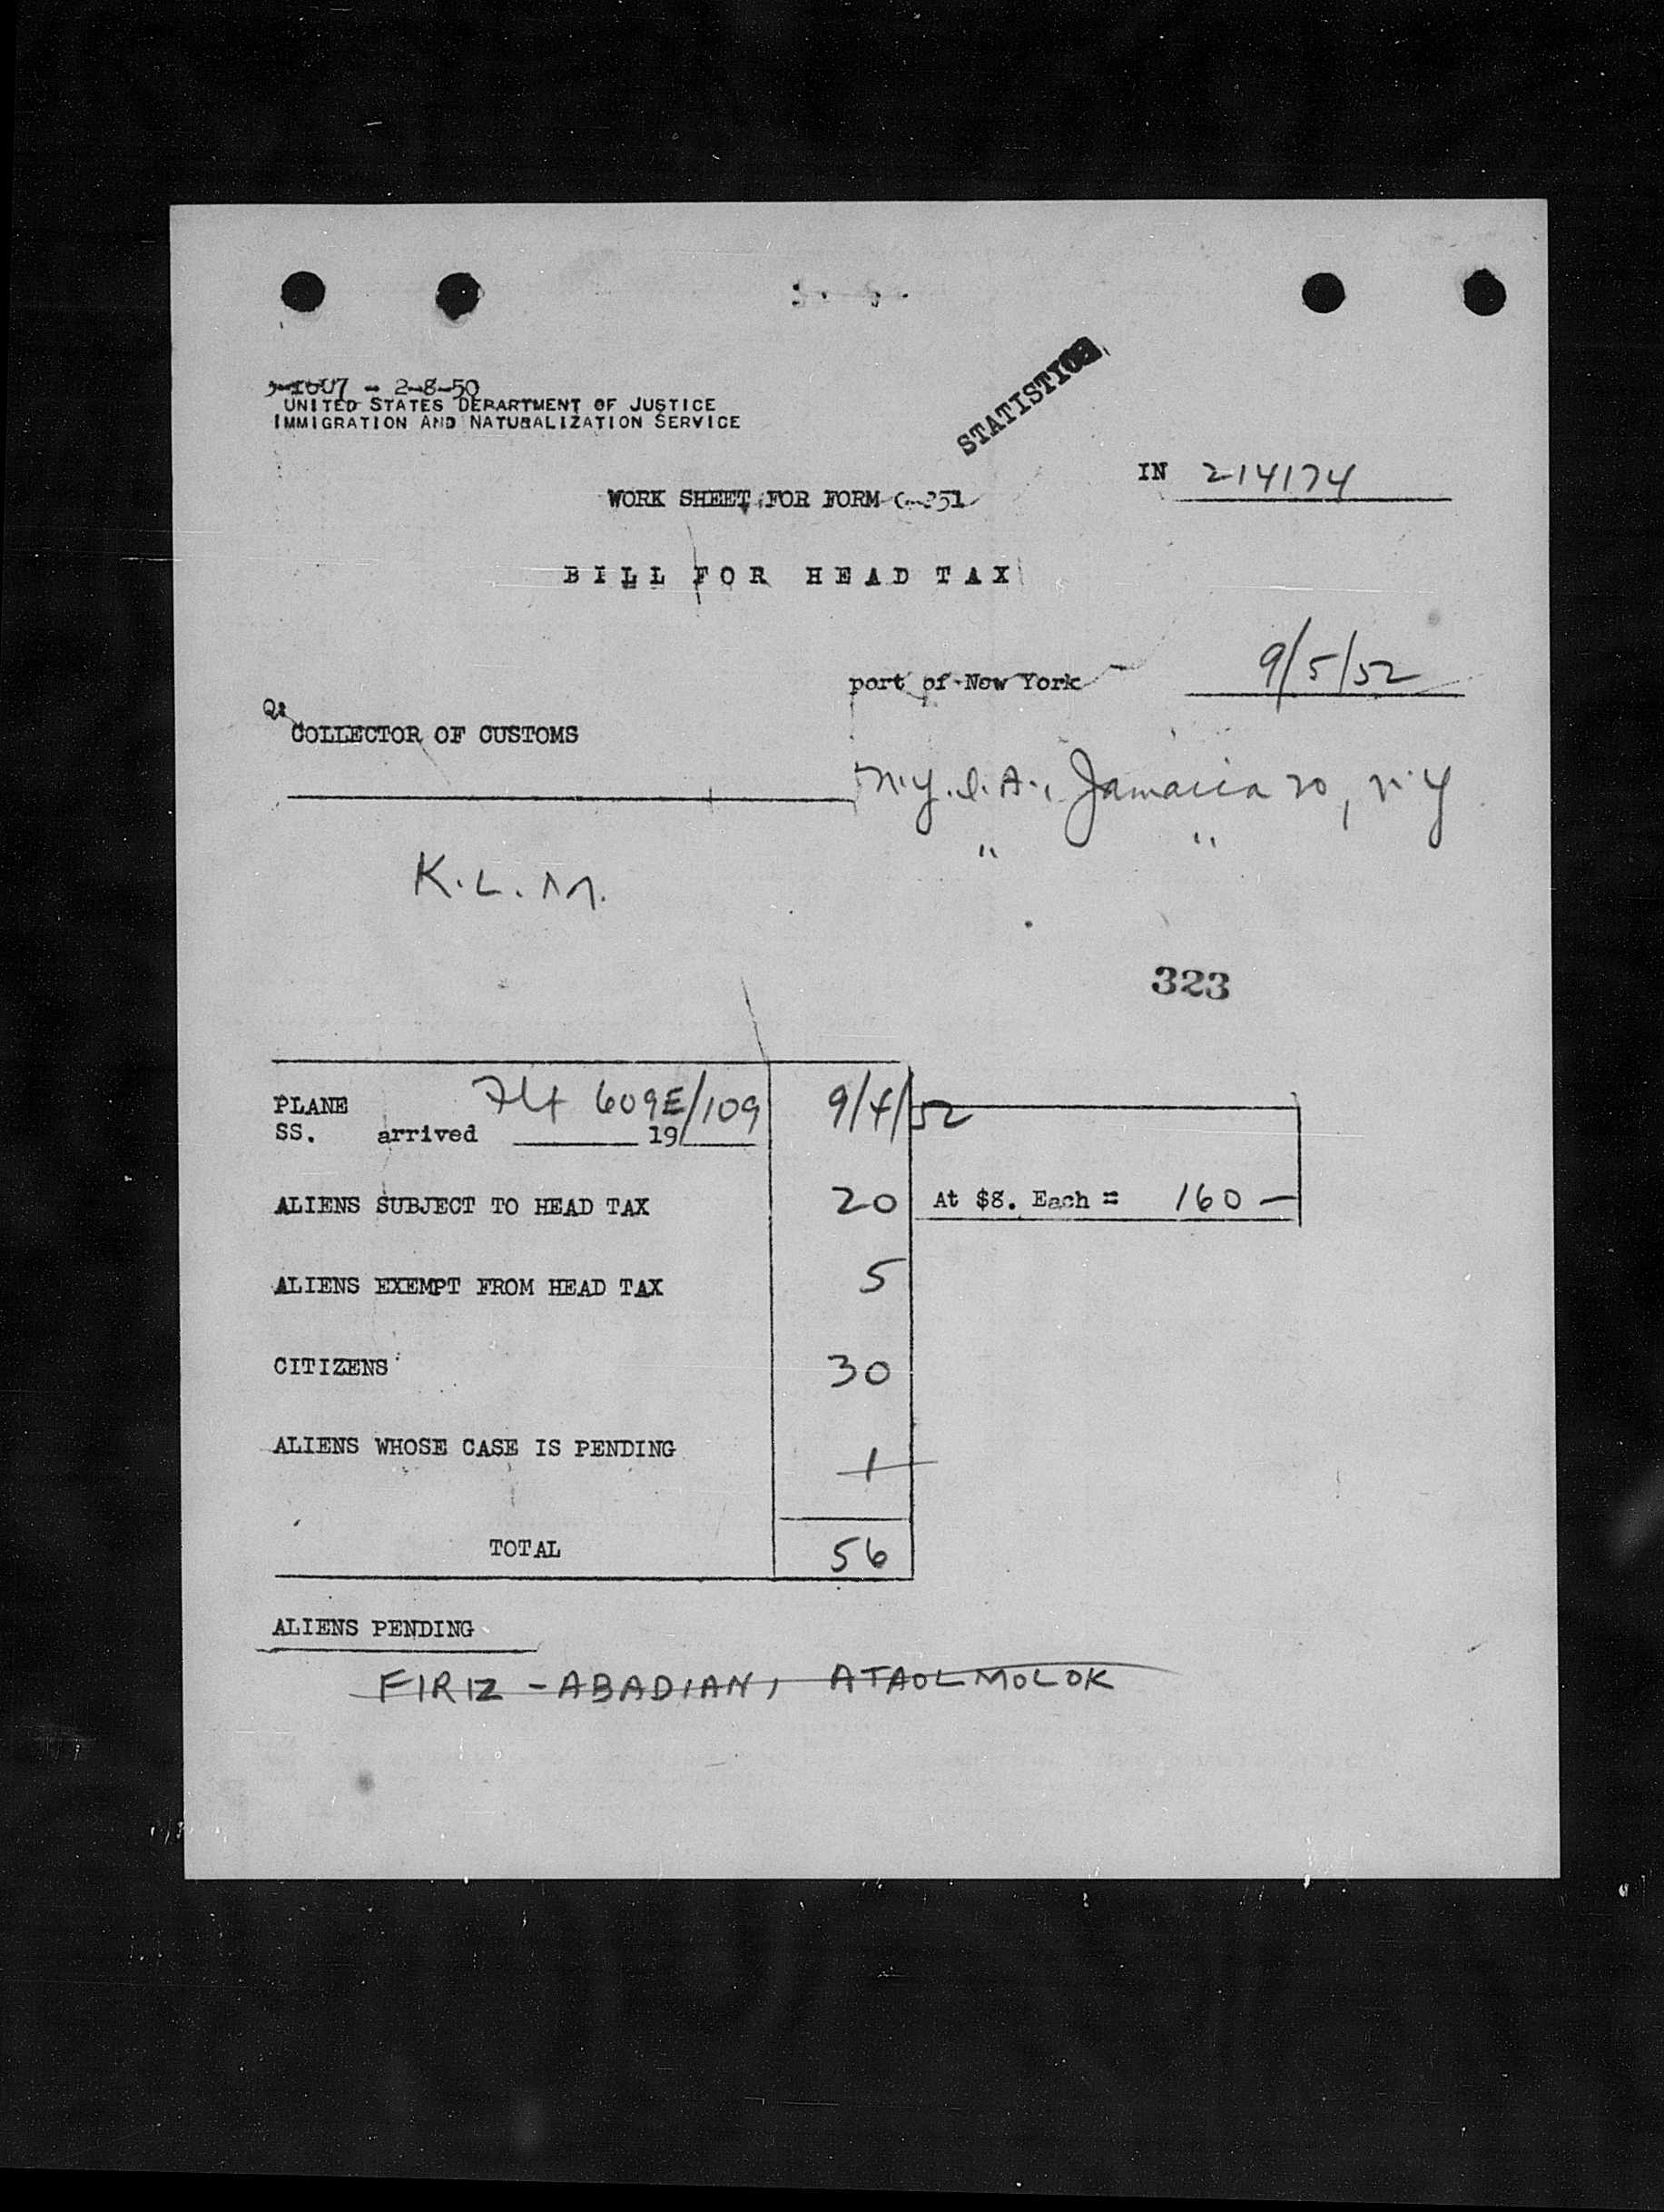 3-1607 - 2-8-50
UNITED STATES DEPARTMENT OF JUSTICE
IMMIGRATION AND NATURALIZATION SERVICE
STATISTICS
IN 214174
WORK SHEET FOR FORM G-251
BILL FOR HEAD TAX
port of New York 9/5/52
COLLECTOR OF CUSTOMS
N.Y.I.A., Jamaica 20, N.Y
" "
K.L.M.
323
PLANE Flt 609E/109 9/4/52
SS. arrived 19
ALIENS SUBJECT TO HEAD TAX 20 At $8. Each = 160 —
ALIENS EXEMPT FROM HEAD TAX 5
CITIZENS 30
ALIENS WHOSE CASE IS PENDING 1
TOTAL 56
ALIENS PENDING
FIRIZ - ABADIAN, ATAOLMOLOK